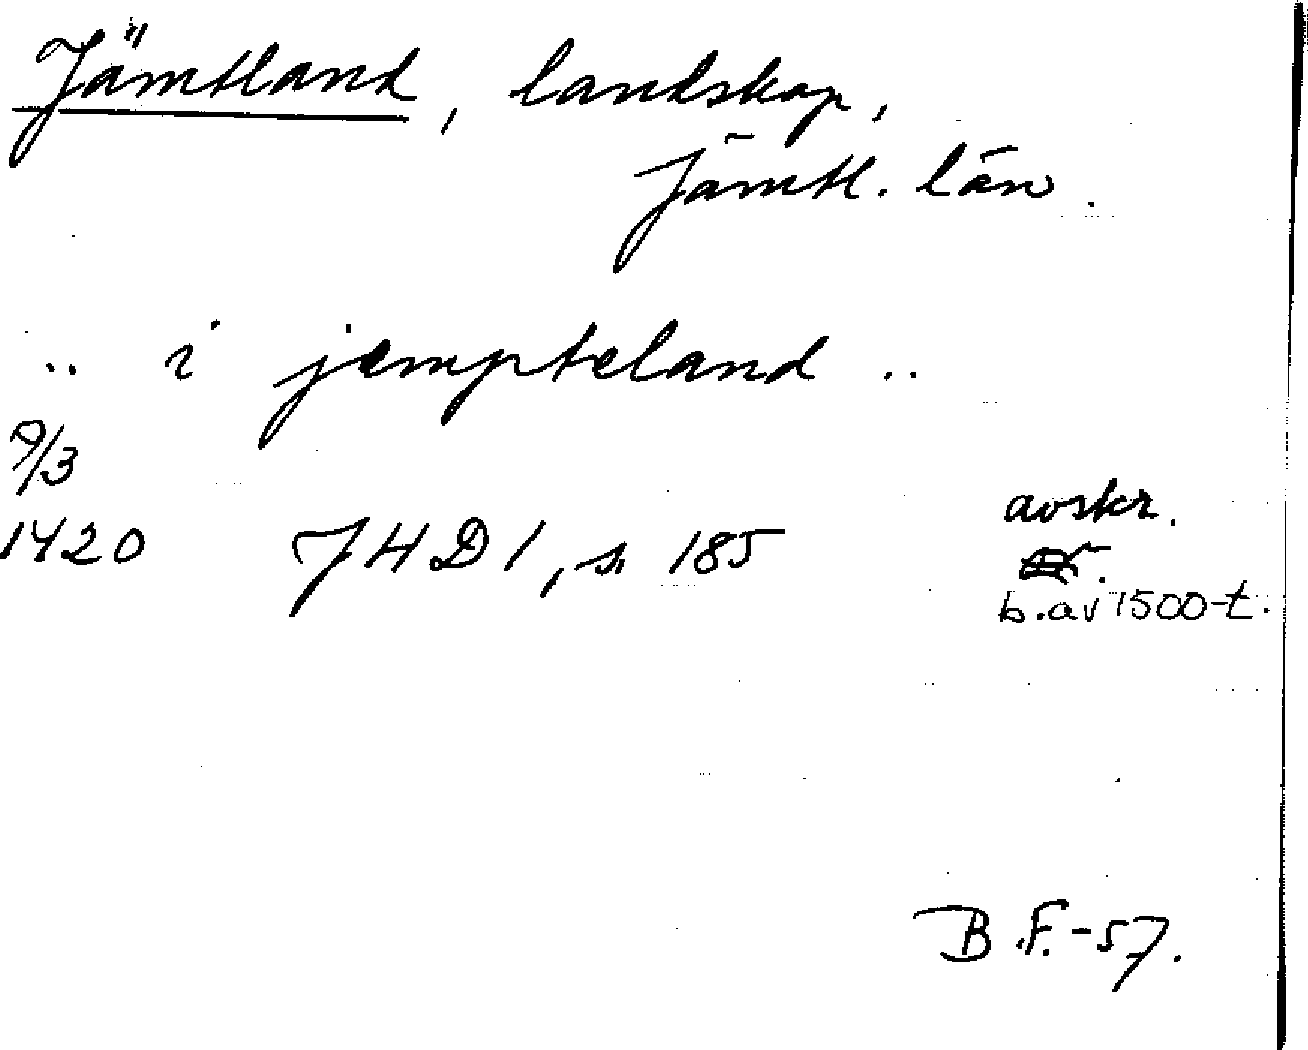 Jämtland, landskap,
Jämtl. län.
.. i jempteland ..
9/3
1420 JHD 1, s. 185 avskr.
b. av 1500-t.
B.F.-57.